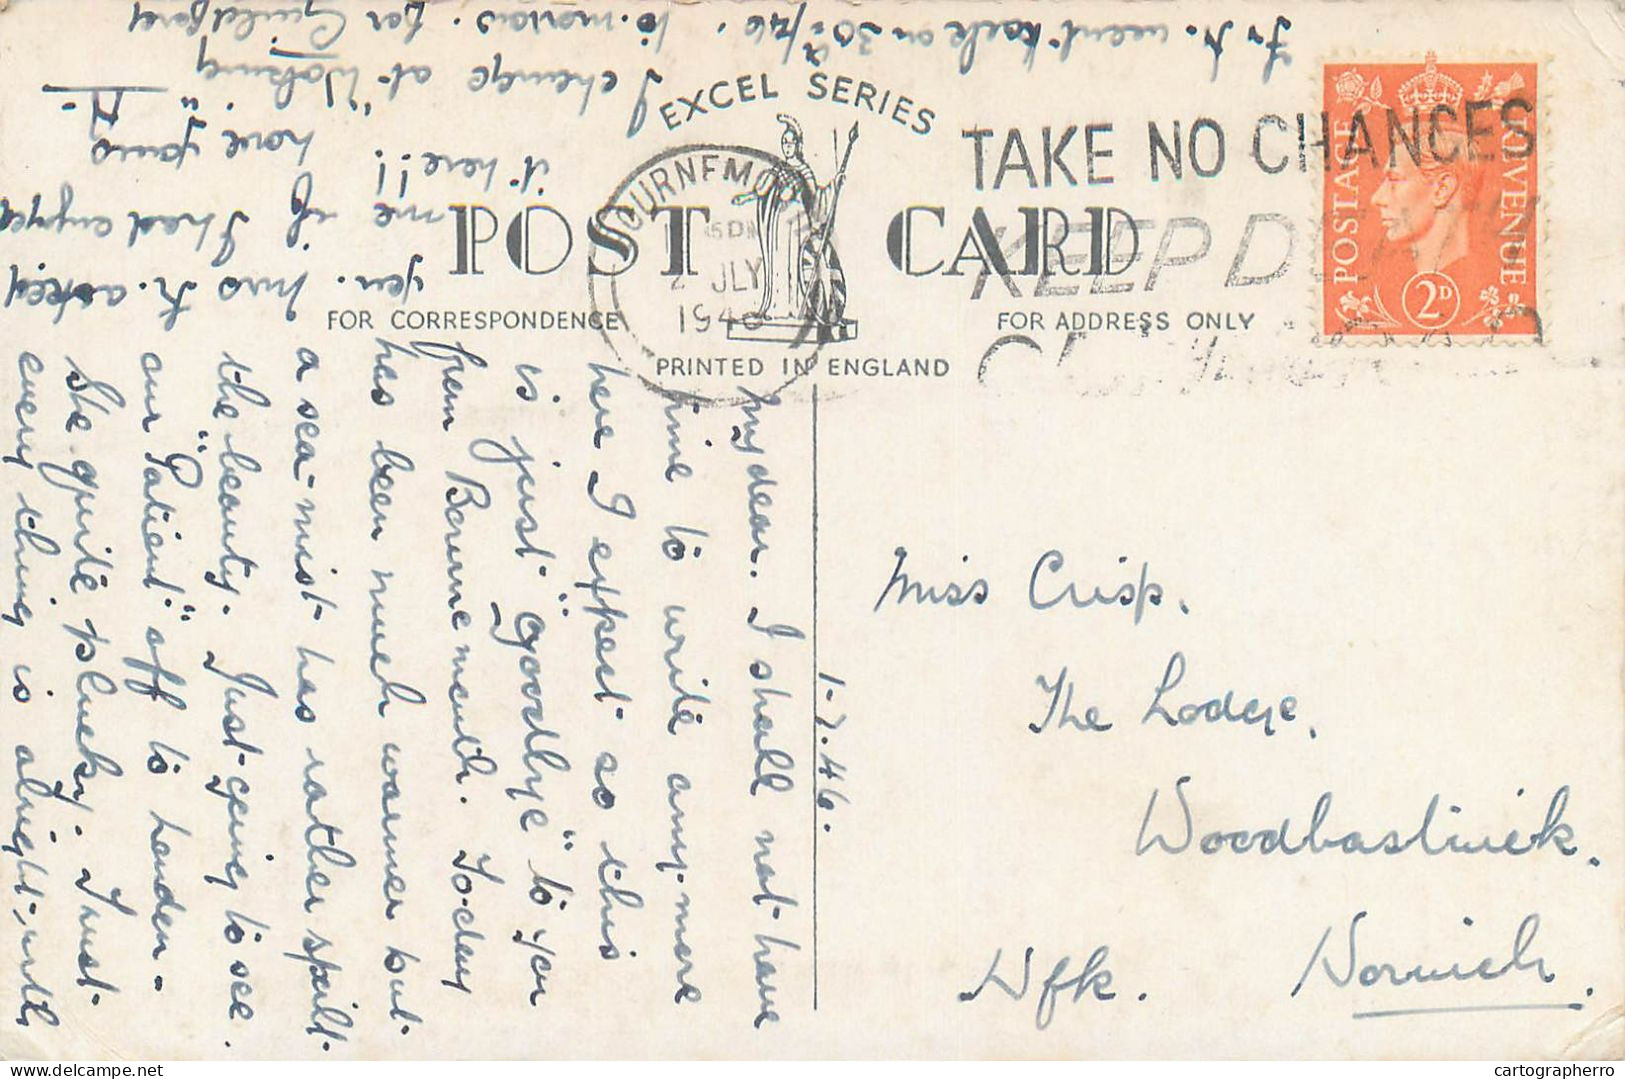 EXCEL SERIES
POST CARD
FOR CORRESPONDENCE
FOR ADDRESS ONLY
PRINTED IN ENGLAND
BOURNEMOU
2 JLY
1946
TAKE NO CHANCES
KEEP D
POSTAGE
REVENUE
2D
1.7.46.
My dear. I shall not have
time to write any more
here I expect so this
is just "goodbye" to you
from Bournemouth. To-day
has been much warmer but
a sea-mist has rather spoilt
the beauty. Just going to see
our "Patient" off to London -
She quite plucky. Trust
every thing is alright with
you. Mrs Fr. asked
me if I had enjoyed
it here!!
love yours
Fr Fr. went back on 30th/46.
I change at "Woking"
to-morrow. for Guildford
Miss Crisp.
The Lodge.
Woodbastwick.
Norwich.
Nfk.
cartographerro